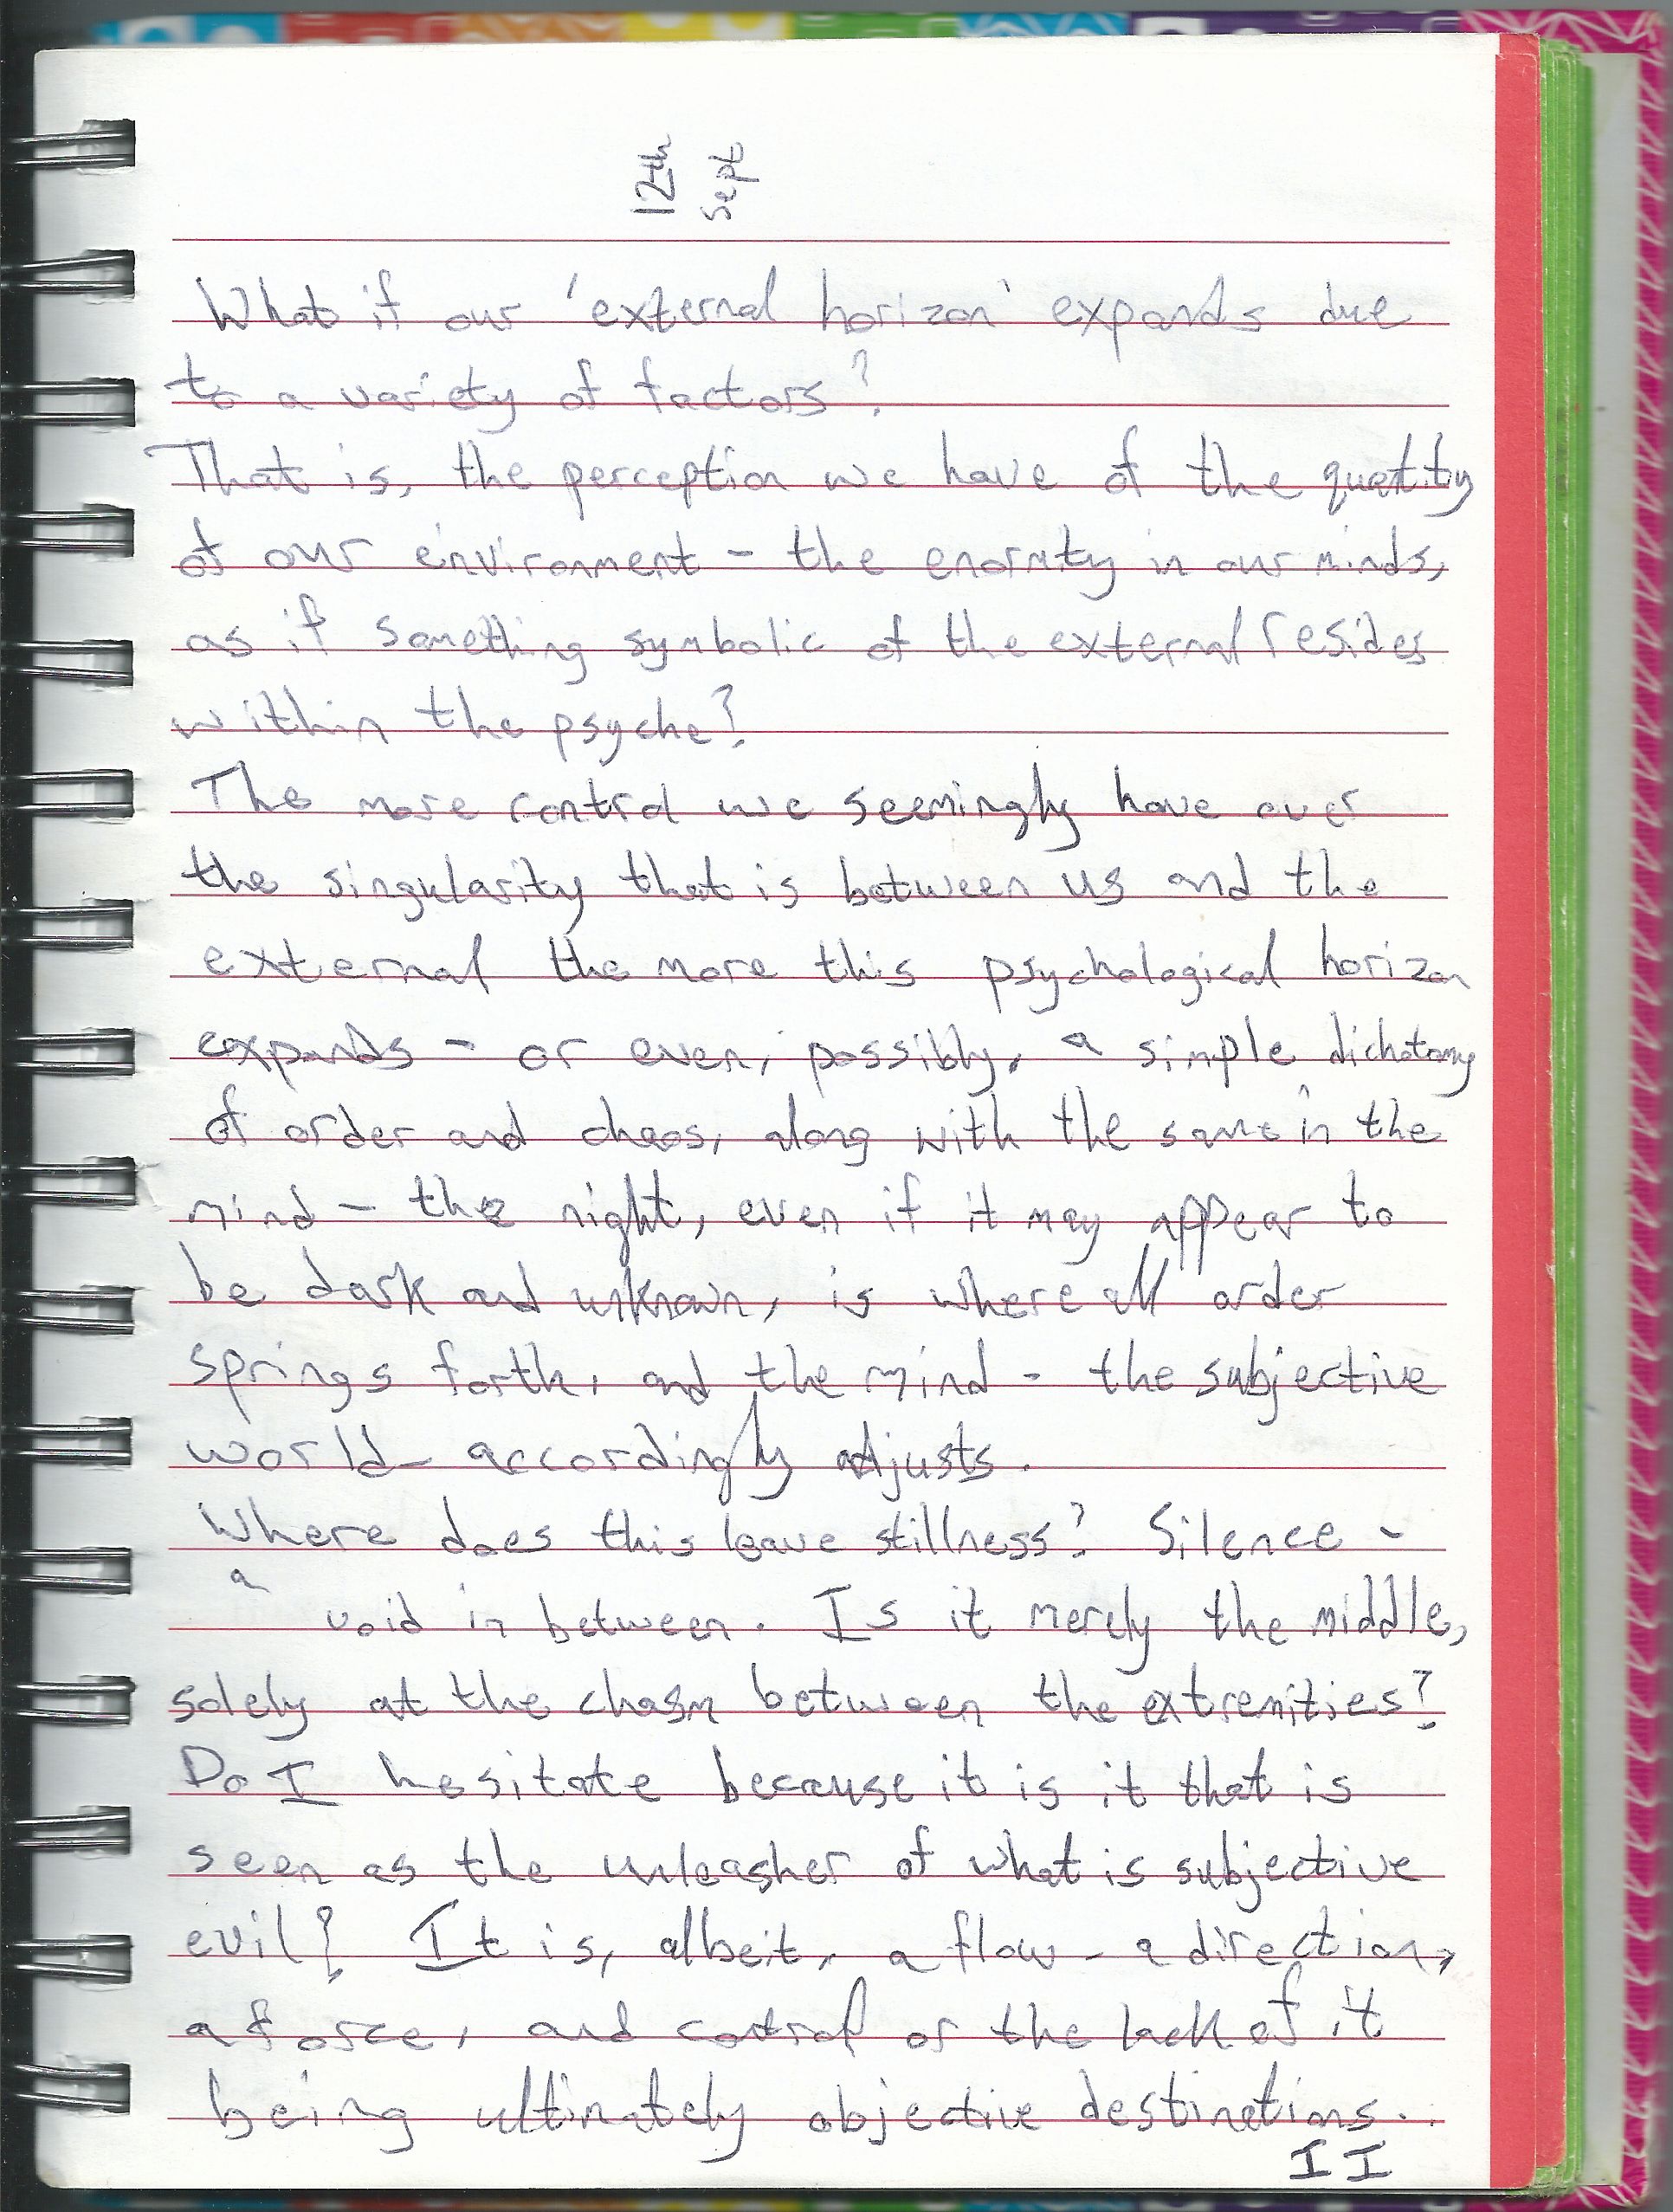 12th
Sept
What if our 'external horizon' expands due
to a variety of factors?
That is, the perception we have of the
of our environment - the enormity in our minds,
as if something symbolic of the external resides
within the psyche?
The more control we seemingly have over
the singularity that is between us and the
external the more this psychological horizon
expands - or even, possibly, a simple dichotomy
of order and chaos, along with the same in the
mind - the night, even if it may appear to
be dark and unknown, is where all order
springs forth, and the mind - the subjective
world - accordingly adjusts.
Where does this leave stillness? Silence -
a void in between. Is it merely the middle,
solely at the chasm between the extremities?
Do I hesitate because it is it that is
seen as the unleasher of what is subjective
evil? It is, albeit, a flow - a direction,
a force, and control or the lack of it
being ultimately objective destinations..
II